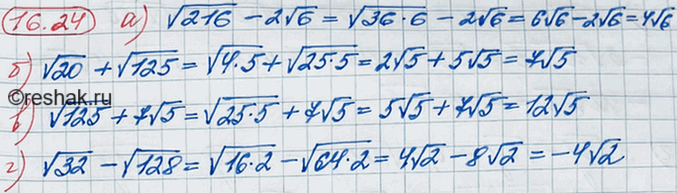 16.24 а) √216 - 2√6 = √36·6 - 2√6 = 6√6 - 2√6 = 4√6
б) √20 + √125 = √4·5 + √25·5 = 2√5 + 5√5 = 7√5
©reshak.ru
в) √125 + 7√5 = √25·5 + 7√5 = 5√5 + 7√5 = 12√5
г) √32 - √128 = √16·2 - √64·2 = 4√2 - 8√2 = -4√2